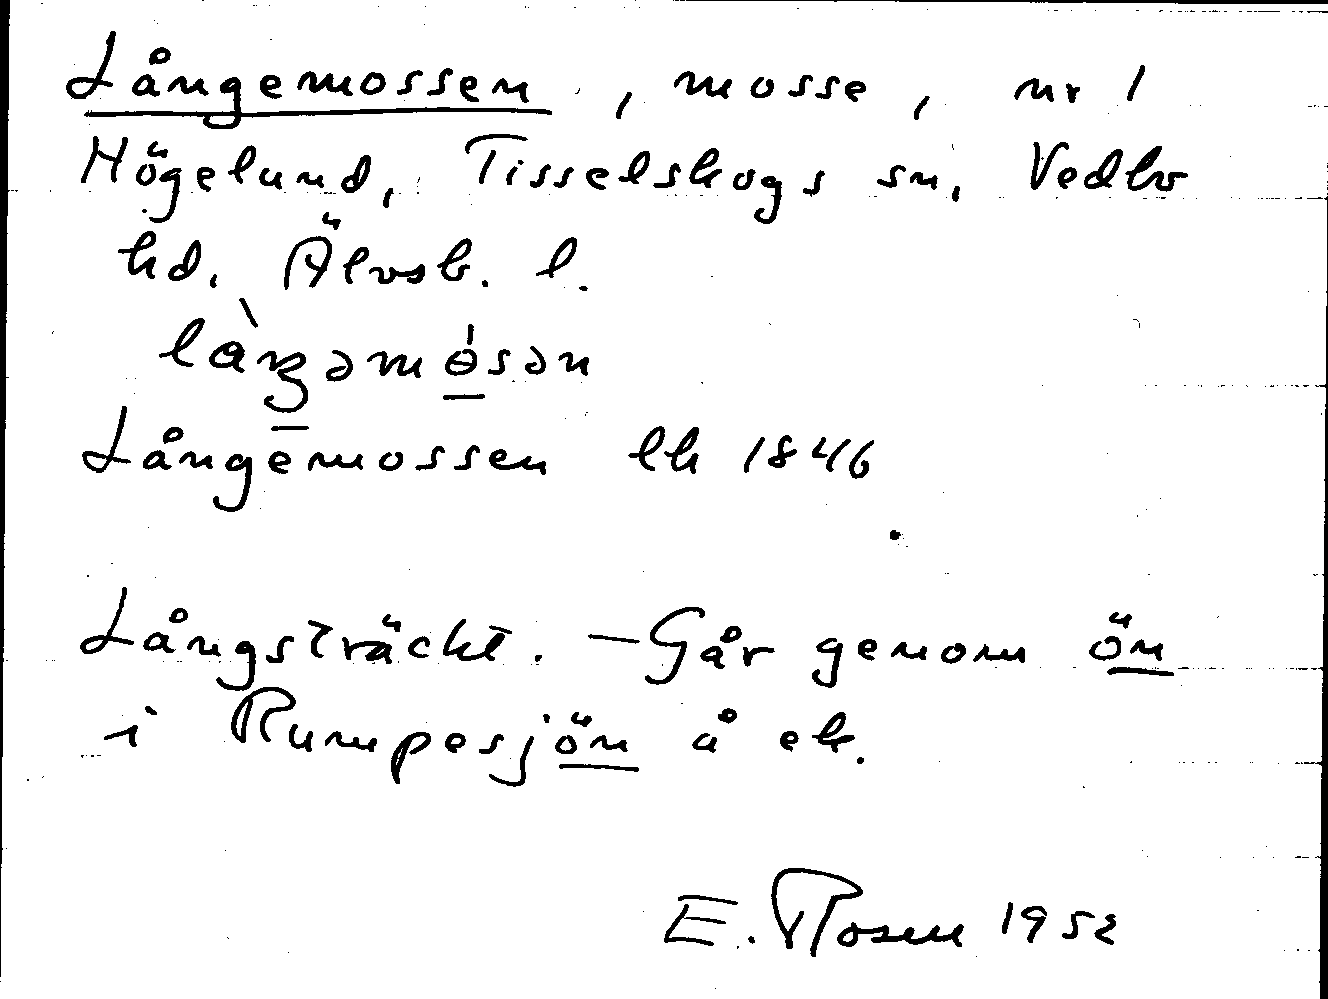 Långemossen, mosse, nr 1
Högelund, Tisselskogs sn, Vedbo
hd, Älvsb. l.
làŋəmɵ́sən
Långemossen lk 1846
Långsträckt. – Går genom ön
i Rumpesjön å ek.
E. Rosen 1952